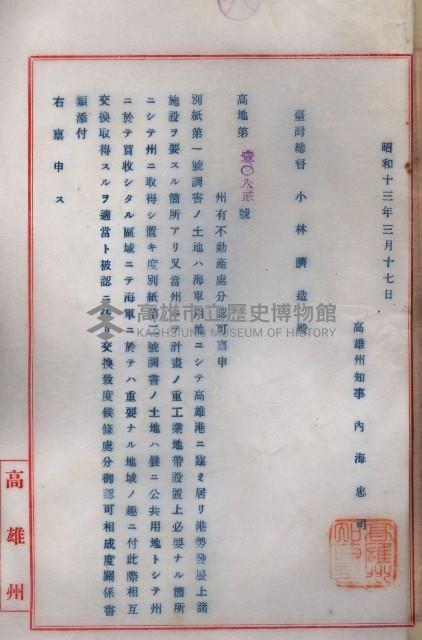 昭和十三年三月十七日
高雄州知事 內海忠司
臺灣總督 小林躋造殿
高地第壹〇八貳號
州有不動產處分認可禀申
別紙第一號調書ノ土地ハ海軍用地ニシテ高雄港ニ臨ミ居リ港勢發展上諸
施設ヲ要スル箇所アリ又當州ニ於テ計畫ノ重工業地帶設置上必要ナル箇所
ニシテ州ニ取得シ置キ度別紙第二號調書ノ土地ハ曩ニ公共用地トシテ州
ニ於テ買收シタル區域ニテ海軍ニ於テハ重要ナル地域ノ趣ニ付此際相互
交換取得スルヲ適當ト被認ニ依リ交換致度候條處分御認可相成度關係書
類添付
右禀申ス
高雄州
高雄市立歷史博物館
KAOHSIUNG MUSEUM OF HISTORY